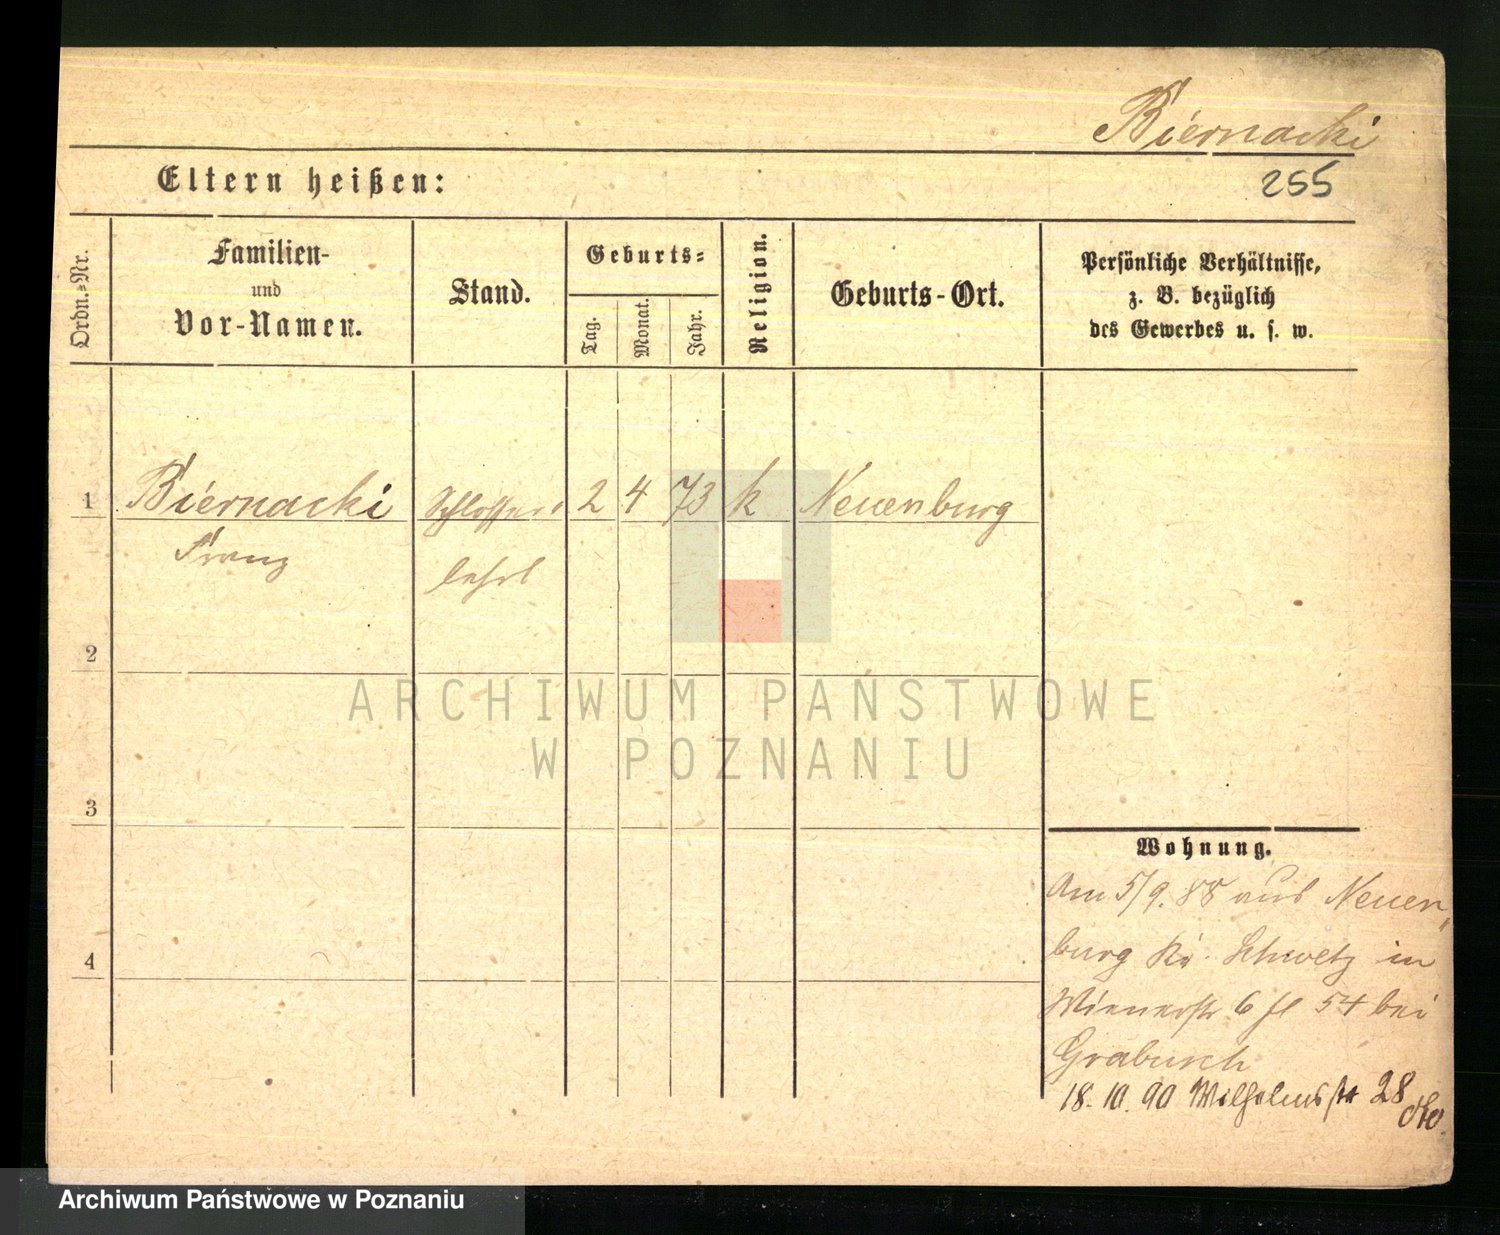 Biernacki
255
Eltern heißen:
Ordn.=Nr.
Familien-
und
Vor-Namen.
Stand.
Geburts=
Tag.
Monat.
Jahr.
Religion.
Geburts-Ort.
Persönliche Verhältnisse,
z. B. bezüglich
des Gewerbes u. s. w.
1 Biernacki Schlosser 2 4 73 k Neuenburg
Franz lehrl
2
3
4
Wohnung.
Am 5/9. 88 aus Neuen„
burg Kr. Schwetz in
Wienerstr 6 54 bei
Grabusch
18. 10. 90 Wilhelmsstr 28
ARCHIWUM PAŃSTWOWE
W POZNANIU
Archiwum Państwowe w Poznaniu